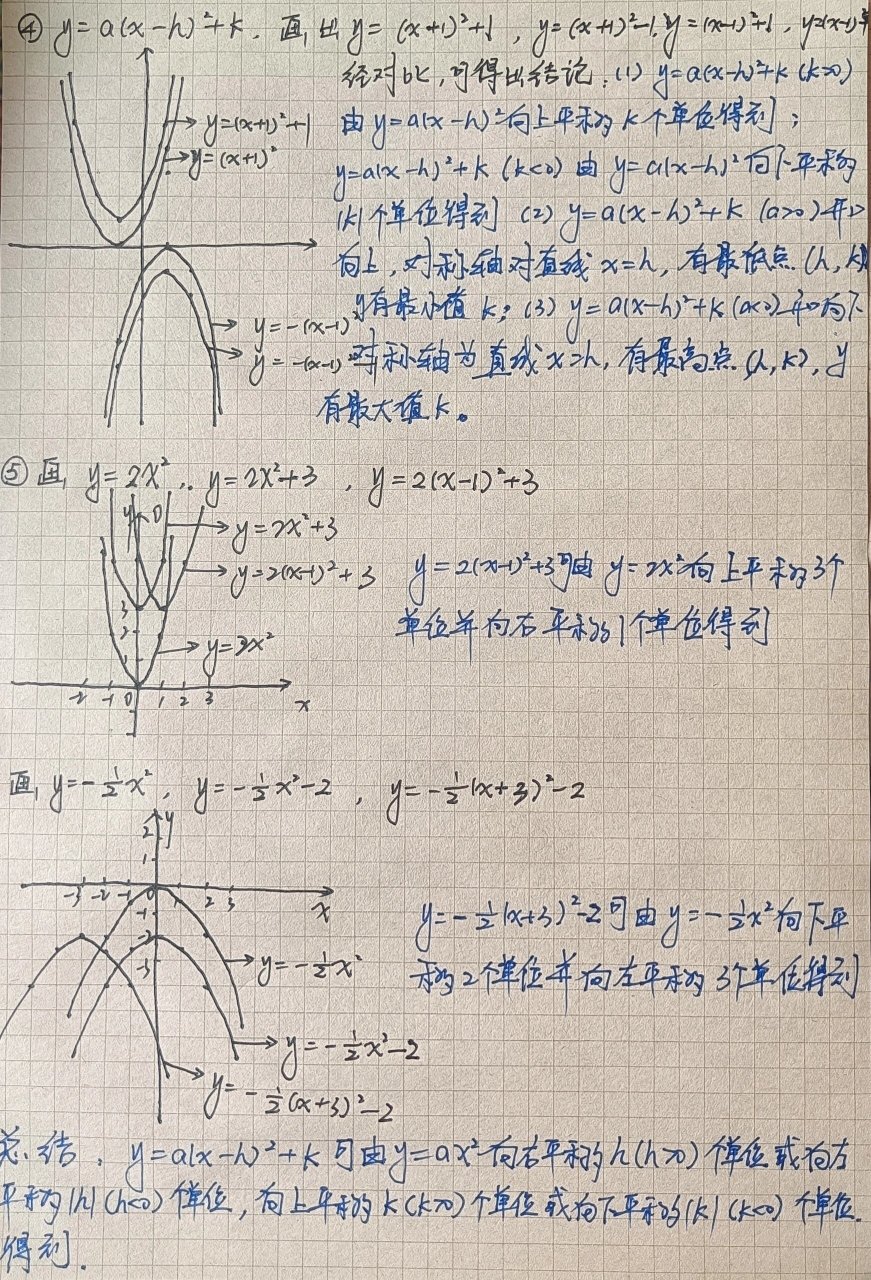 ④ y=a(x-h)²+k. 画出 y=(x+1)²+1, y=(x+1)²-1, y=(x-1)²+1, y=(x-1)²
经对比,可得出结论:(1) y=a(x-h)²+k (k>0)
由 y=a(x-h)² 向上平移 k 个单位得到;
y=a(x-h)²+k (k<0) 由 y=a(x-h)² 向下平移
|k| 个单位得到 (2) y=a(x-h)²+k (a>0) 开口
向上,对称轴对直线 x=h, 有最低点 (h, k)
y有最小值 k; (3) y=a(x-h)²+k (a<0) 开口向下
对称轴为直线 x=h, 有最高点 (h, k), y
有最大值 k。
y=(x+1)²+1
y=(x+1)²
y=-(x-1)²
y=-(x-1)²
⑤ 画 y=2x², y=2x²+3, y=2(x-1)²+3
y
y=2x²+3
y=2(x-1)²+3
y=2x²
3
2
1
-2 -1 0 1 2 3
x
y=2(x-1)²+3可由 y=2x²向上平移3个
单位并向右平移1个单位得到
画 y=-½x², y=-½x²-2, y=-½(x+3)²-2
y
2
1
-3 -2 -1 0 2 3
x
-1
-2
-3
y=-½x²
y=-½x²-2
y=-½(x+3)²-2
y=-½(x+3)²-2可由 y=-½x²向下平
移2个单位并向左平移3个单位得到
总结, y=a(x-h)²+k 可由 y=ax² 向右平移 h(h>0) 个单位或向左
平移|h|(h<0) 个单位, 向上平移 k(k>0) 个单位或向下平移|k|(k<0) 个单位.
得到.